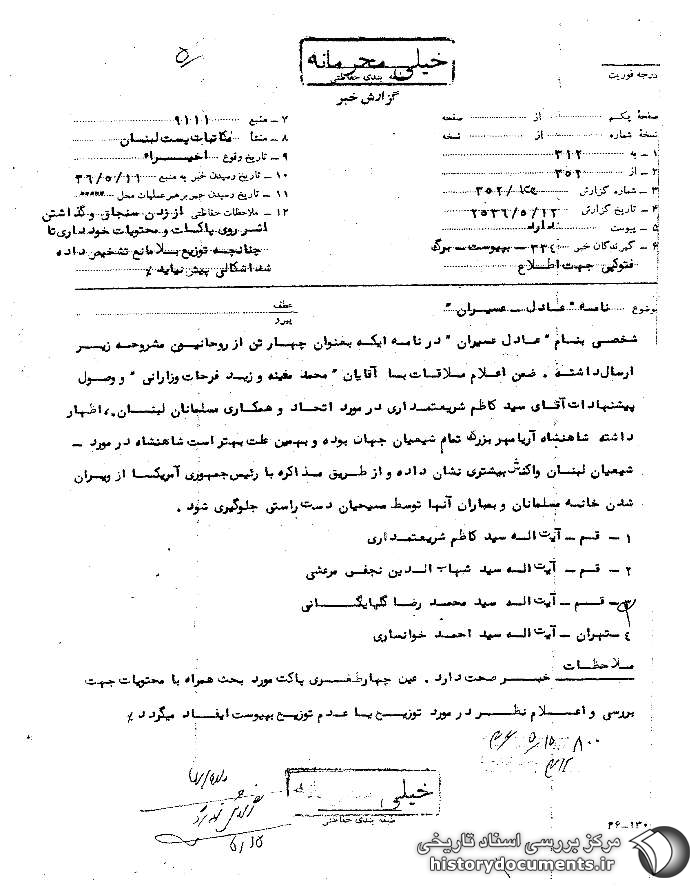 خیلی محرمانه
طبقه بندی حفاظتی
گزارش خبر
درجه فوریت
صفحه یکم از صفحه
نسخه شماره از نسخه
۱ - به ۳۱۲
۲ - از ۳۵۲
۳ - شماره گزارش /۳۵۲
۴ - تاریخ گزارش ۲۵۳۶/۵/۱۲
۵ - پیوست دارد
۶ - گیرندگان خبر ۳۳۴ - بپیوست - برگ
فتوکپی جهت اطلاع
۷ - منبع ۹۱۱۱
۸ - منشأ مکاتبات پست لبنسان
۹ - تاریخ وقوع اخیسرا
۱۰ - تاریخ رسیدن خبر به منبع ۳۶/۵/۱۱
۱۱ - تاریخ رسیدن خبر برهبر عملیات محل
۱۲ - ملاحظات حفاظتی از زدن سنجاق و گذاشتن
اثر روی پاکسات و محتویات خود داری تا
چنانچه توزیع بلامانع تشخیص داده
شد اشکالی پیش نیاید٪
موضوع نامسه " عادل - عسیران "
عطف
پیرو
شخصی بنام " عادل عسیران " در نامه ایکه بعنوان چهار تن از روحانیون مشروحه زیر
ارسال داشته . ضمن اعلام ملاقات بسا آقایان " محمد مغینه و زید فرحات وزارانی " و وصول
پیشنهادات آقای سید کاظم شریعتمداری در مورد اتحاد و همکاری مسلمانان لبنسان ، اظهار
داشته شاهنشاه آریامهر بزرگ تمام شیعیان جهان بوده و بهمین علت بهتر است شاهنشاه در مورد -
شیعیان لبنسان واکنش بیشتری نشان داده و از طریق مذاکره با رئیس جمهوری آمریکسا از ویسران
شدن خانسه مسلمانان و بمباران آنها توسط مسیحیان دست راستی جلوگیری شود .
۱ - قسم - آیت السه سید کاظم شریعتمداری
۲ - قم - آیت السه سید شهاب السدین نجفی مرعشی
۳ - قسم - آیت السه سید محمد رضا گلپایگسانی
۴ - تهران - آیت السه سید احمد خوانساری
ملاحظات
خبسر صحت دارد . عین چهار پاکت مورد بحث همراه با محتویات جهت
بررسی و اعسلام نظسر در مورد توزیع یسا عدم توزیع بپیوست ایفساد میگردد٪
۸۰۰ ۵/۱۵
خیلی
طبقه بندی حفاظتی
۵/۱۵
۳۶-۱۳۰
مرکز بررسی اسناد تاریخی
historydocuments.ir